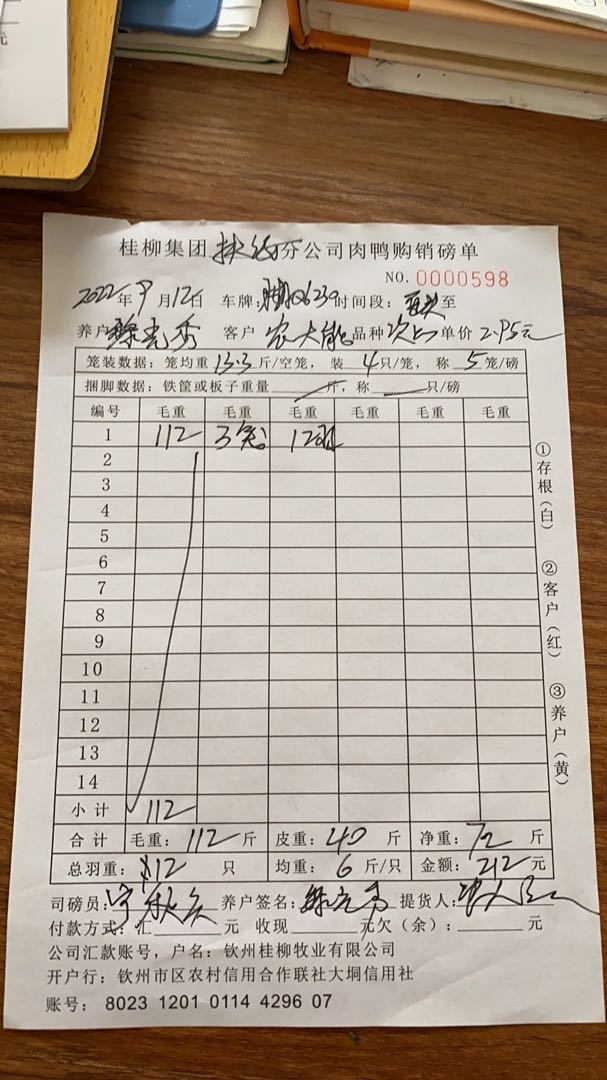 桂柳集团 分公司肉鸭购销磅单
NO.0000598
2022年9月12日 车牌: Q6239 时间段: 至
养户 秀 客户 农大能 品种 次品 单价 2.95元
笼装数据：笼均重13.3斤/空笼，装4只/笼，称5笼/磅
捆脚数据：铁筐或板子重量 斤，称 只/磅
编号 毛重 毛重 毛重 毛重 毛重
1 112 3笼 12羽
2
3
4
5
6
7
8
9
10
11
12
13
14
小计 112
合计 毛重：112斤 皮重：40斤 净重：72斤
总羽重：12只 均重：6斤/只 金额：212元
司磅员： 养户签名： 提货人：
付款方式：汇 元 收现 元欠（余）： 元
公司汇款账号，户名：钦州桂柳牧业有限公司
开户行：钦州市区农村信用合作联社大垌信用社
账号：8023 1201 0114 4296 07
①存根（白）
②客户（红）
③养户（黄）